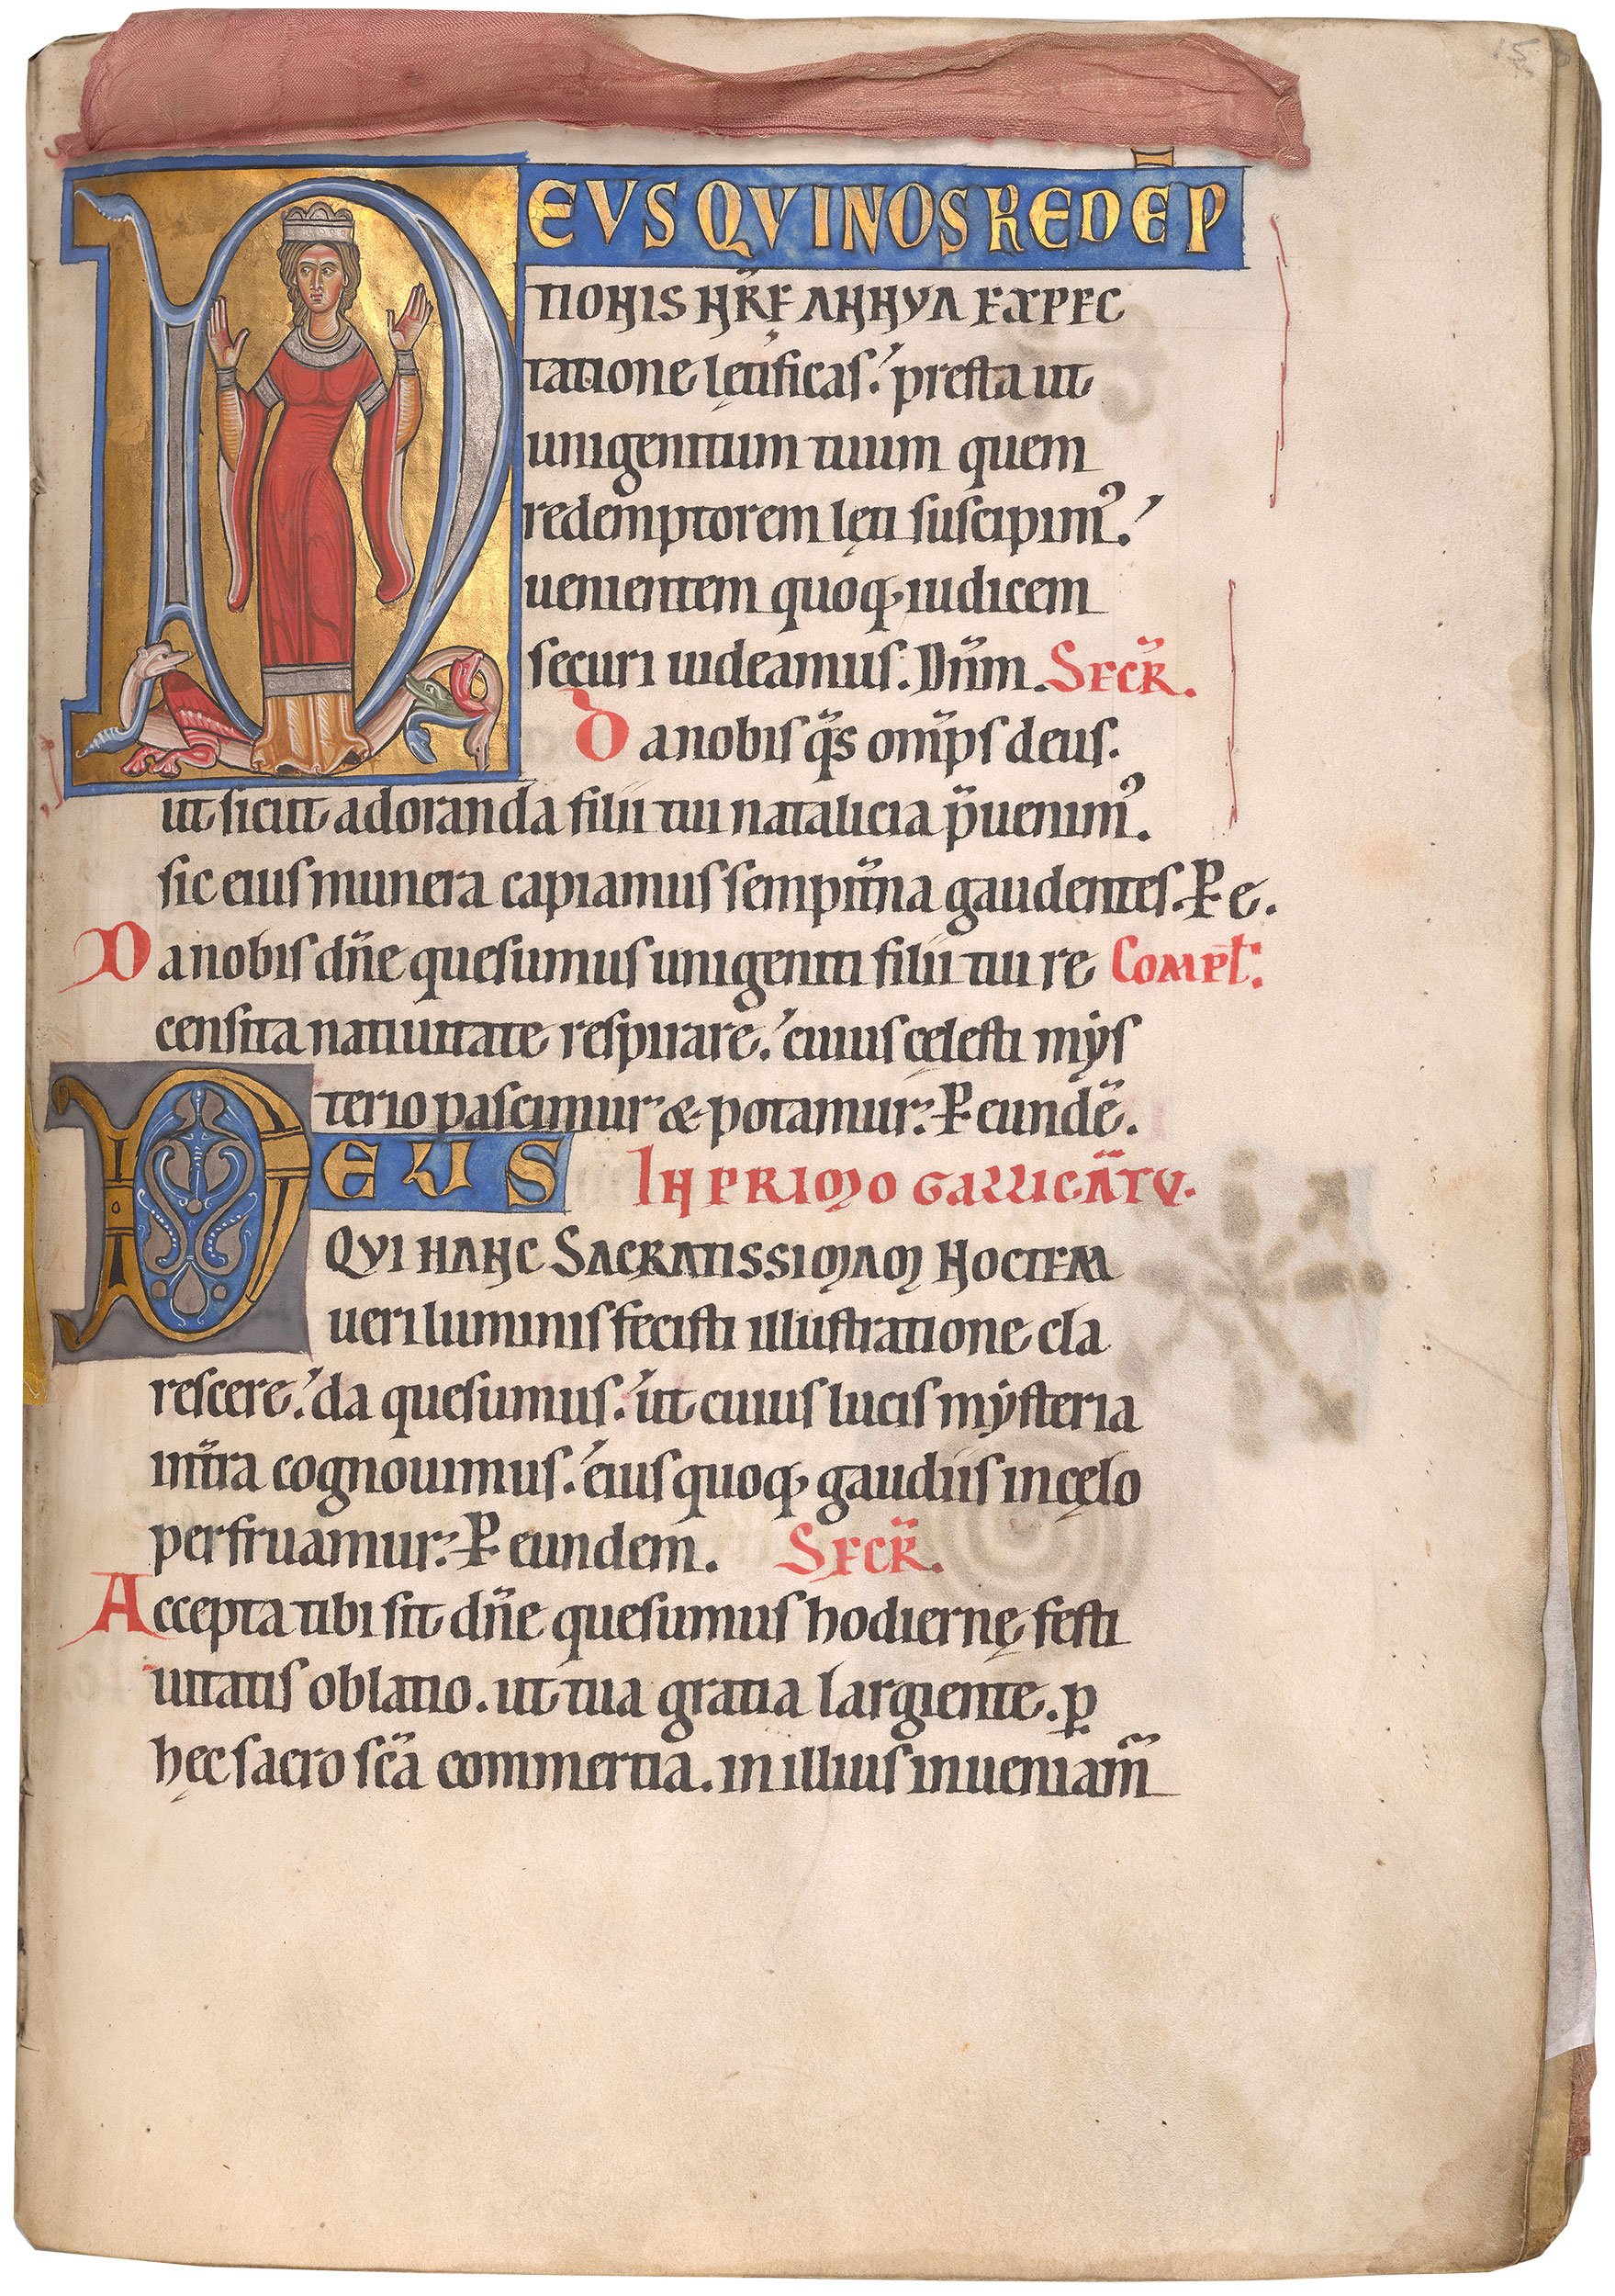 15
DEVS QVI NOS REDĒP
TIONIS NR̄E ANNVA EXPEC
tatione lętificas. presta ut
unigenitum tuum quem
redemptorem lęti suscipim᾽.
uenientem quoq; iudicem
securi uideamus. Dn̄m. SECR̄.
Da nobis q̄s om̄ps deus.
ut sicut adoranda filii tui natalicia p̄uenim᾽.
sic eius munera capiamus sempit̄na gaudentes. P e.
Da nobis dn̄e quesumus unigeniti filii tui re COMPL̄:
censita natiuitate respirare. cuius cęlesti mys
terio pascimur & potamur: P eundē.
DEUS IN PRIMO GALLICĀTV.
QVI HANC SACRATISSIMAM NOCTEM
ueri luminis fecisti illustratione cla
rescere. da quesumus. ut cuius lucis mysteria
in t̄ra cognouimus. eius quoq; gaudiis in cęlo
perfruamur: P eundem. SECR̄.
Accepta tibi sit dn̄e quesumus hodiernę festi
uitatis oblatio. ut tua gratia largiente. ꝑ
hęc sacro sc̄a commertia. in illius inueniam̄